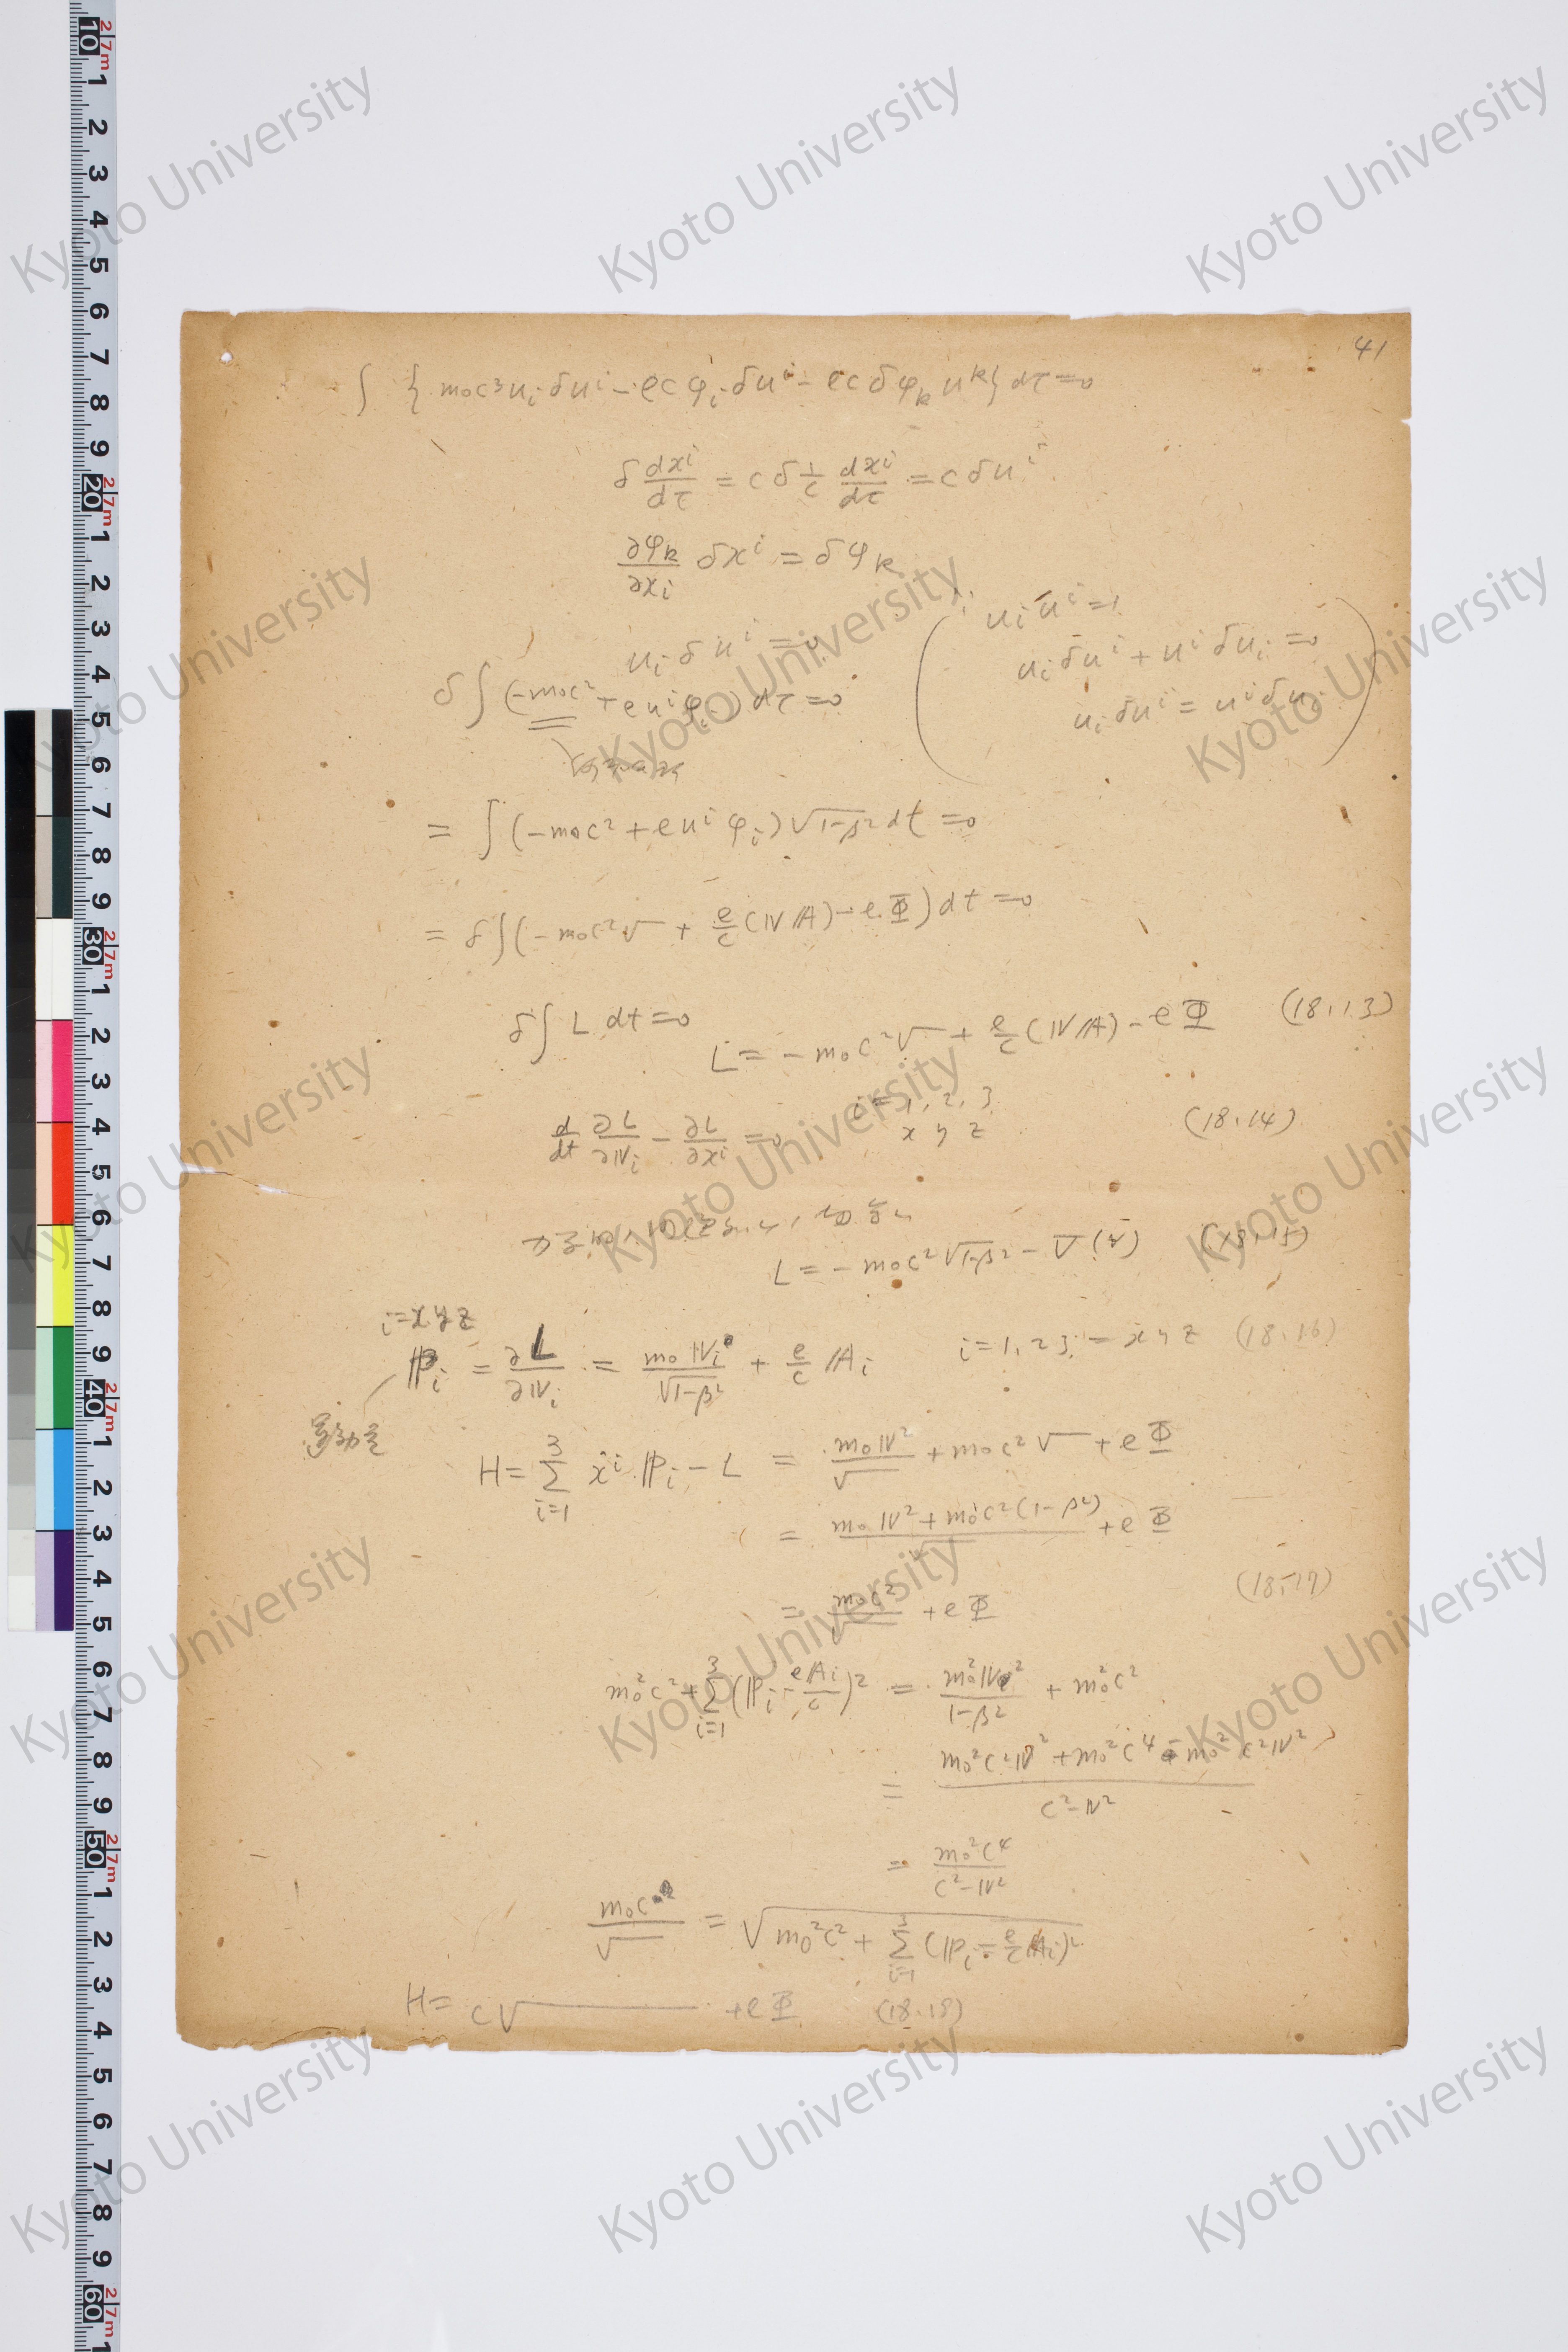 41
∫ { m₀c³uᵢδuⁱ − ecφᵢδuⁱ − ecδφₖuᵏ} dτ = 0
δ dxⁱ/dτ = cδ 1/c dxⁱ/dτ = cδuⁱ
∂φₖ/∂xᵢ δxⁱ = δφₖ
uᵢδuⁱ = 0
( uᵢuⁱ = 1
uᵢδuⁱ + uⁱδuᵢ = 0
uᵢδuⁱ = uⁱδuᵢ )
δ∫(−m₀c² + euⁱφᵢ) dτ = 0
= ∫(−m₀c² + euⁱφᵢ)√1−β² dt = 0
= δ∫(−m₀c²√ + e/c(𝕍𝔸) − eΦ)dt = 0
δ∫ L dt = 0
L = −m₀c²√ + e/c(𝕍𝔸) − eΦ (18.13)
d/dt ∂L/∂𝕍ᵢ − ∂L/∂xⁱ = 0 i = 1, 2, 3 (18.14)
x y z
L = −m₀c²√1−β² − V(r) (18.15)
i = x y z
ℙᵢ = ∂L/∂𝕍ᵢ = m₀𝕍ᵢ/√1−β² + e/c 𝔸ᵢ i = 1, 2 3 = x y z (18.16)
運動量
H = Σ³ᵢ₌₁ ẋⁱℙᵢ − L = m₀𝕍²/√ + m₀c²√ + eΦ
= m₀𝕍² + m₀c²(1−β²)/√ + eΦ
= m₀c²/√ + eΦ (18.17)
m₀²c² + Σ³ᵢ₌₁(ℙᵢ − e𝔸ᵢ/c)² = m₀²𝕍²/1−β² + m₀²c²
= m₀²c²𝕍² + m₀²c⁴ − m₀²c²𝕍²/c²−𝕍²
= m₀²c⁴/c²−𝕍²
m₀c/√ = √m₀²c² + Σ³ᵢ₌₁(ℙᵢ − e/c 𝔸ᵢ)²
H = c√ + eΦ (18.18)